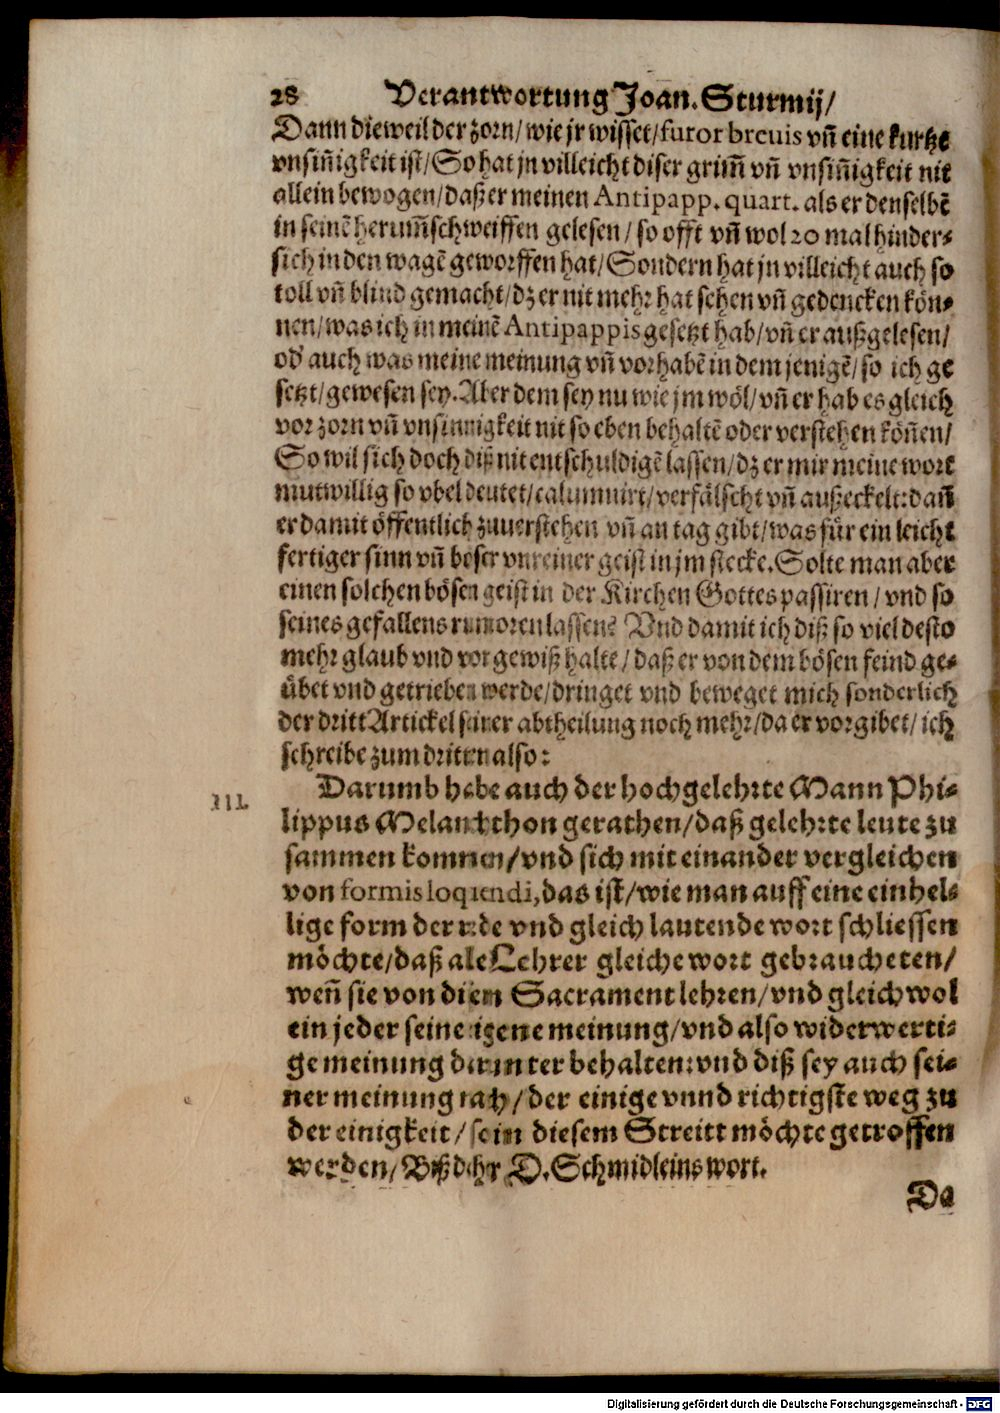 28 Verantwortung Joan. Sturmij/
Dann dieweil der zorn/ wie jr wisset/ furor brevis vñ eine kurtze
vnsiñigkeit ist/ So hat jn villeicht diser grim̃ vñ vnsiñigkeit nit
allein bewogen/ daß er meinen Antipapp. quart. als er denselbẽ
in seinẽ herum̃schweiffen gelesen/ so offt vñ wol 20 mal hinder-
sich in den wagẽ geworffen hat/ Sondern hat jn villeicht auch so
toll vñ blind gemacht/ dz er nit mehr hat sehen vñ gedencken kön-
nen/ was ich in meinẽ Antipappis gesetzt hab/ vñ er außgelesen/
od' auch was meine meinung vñ vorhabẽ in dem jenigẽ/ so ich ge
setzt/ gewesen sey. Aber dem sey nu wie jm wöl/ vñ er hab es gleich
vor zorn vñ vnsinnigkeit nit so eben behaltẽ oder verstehen köñen/
So wil sich doch diß nit entschuldigẽ lassen/ dz er mir meine wort
mutwillig so vbel deutet/ calumnirt/ verfälscht vñ außeckelt: dañ
er damit öffentlich zuuerstehen vñ an tag gibt/ was für ein leicht
fertiger sinn vñ böser vnreiner geist in jm stecke. Solte man aber
einen solchen bösen geist in der Kirchen Gottes passiren/ vnd so
seines gefallens rumoren lassen? Vnd damit ich diß so viel desto
mehr glaub vnd vor gewiß halte/ daß er von dem bösen feind ge-
übet vnd getrieben werde/ dringet vnd beweget mich sonderlich
der dritt Artickel seiner abtheilung noch mehr/ da er vorgibet/ ich
schreibe zum dritten also:
III. Darumb habe auch der hochgelehrte Mann Phi-
lippus Melanchthon gerathen/ daß gelehrte leute zu
sammen kommen/ vnd sich mit einander vergleichen
von formis loquendi, das ist/ wie man auff eine einhel-
lige form der rede vnd gleich lautende wort schliessen
möchte/ daß alle Lehrer gleiche wort gebraucheten/
weñ sie von diesem Sacrament lehren/ vnd gleichwol
ein jeder seine eigene meinung/ vnd also widerwerti-
ge meinung darunter behalten: vnd diß sey auch sei-
ner meinung nach/ der einige vnnd richtigste weg zu
der einigkeit/ so in diesem Streitt möchte getroffen
werden/ Biß daher D. Schmidleins wort.
Da
Digitalisierung gefördert durch die Deutsche Forschungsgemeinschaft - DFG